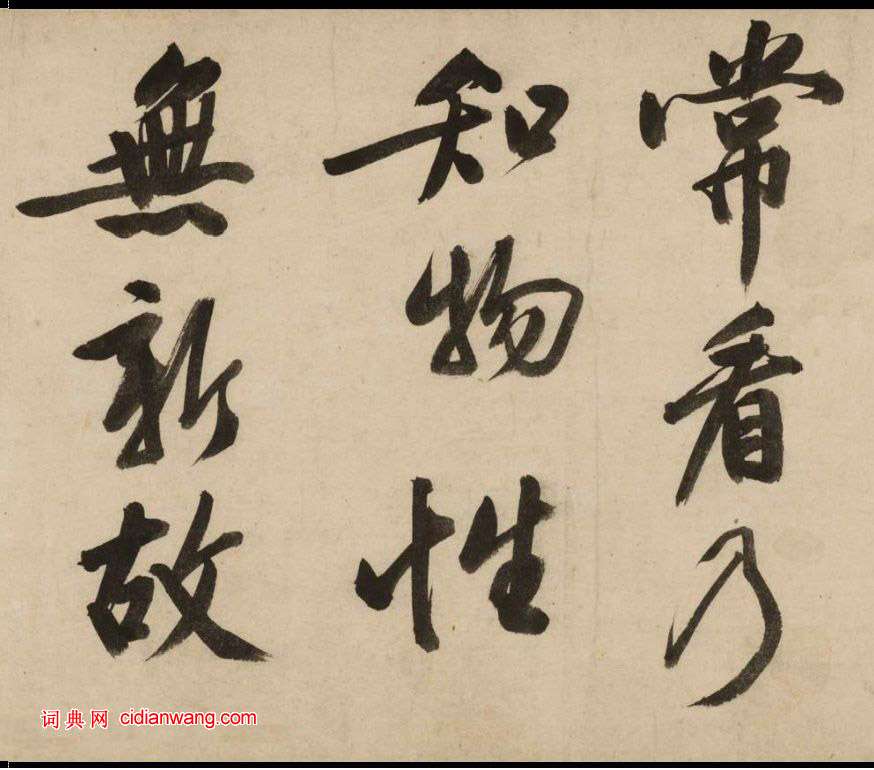 常看乃
知物性
無新故
词典网 cidianwang.com